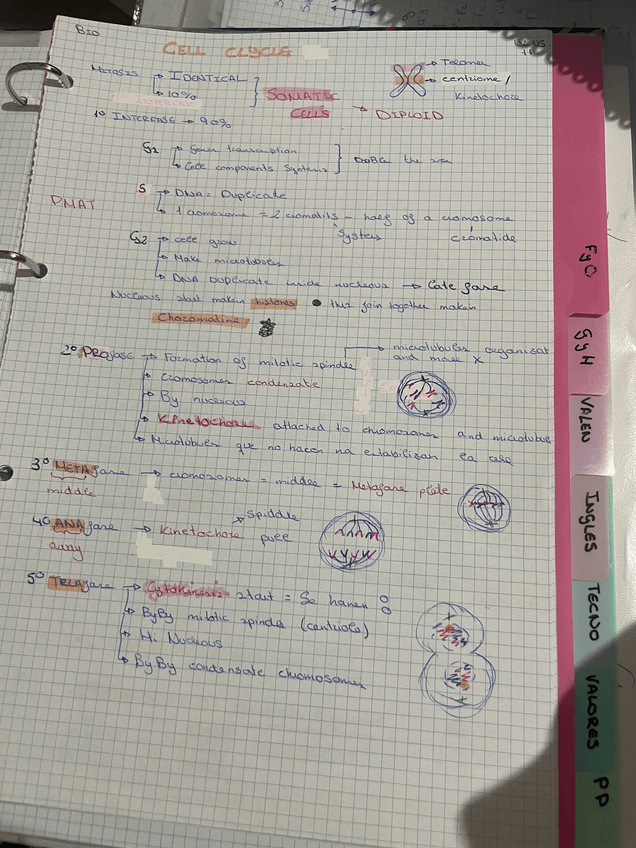 BIO
CELL CLYCLE
MITOSIS → IDENTICAL
→ 10%
SOMATIC CELLS → DIPLOID
→ Telomer
→ centriome /
Kinetochore
1º INTERFASE → 90%
G1 → Gener transcription
→ Cell components syntensis
Double the
PMAT
S → DNA = Duplicate
→ 1 cromosome = 2 cromatids - half of a cromosome
System cromatide
G2 → cell grow
→ Make microtobules
→ DNA Duplicate inside nucleous → Late fase
Nucleous start makein histones • this join together makein
Chozomatine
2º PROfase → Formation of mitotic spindle
→ microtubules organizat
and move X
→ Cromosomes condenzate
→ By nucleous
→ Kinetochore attached to chromozomes and microtubul
→ Microtobules que no hacen na estabilizan la cell
3º METAfase → cromozomes = middle = Metafase plate
middle
4º ANAfase → Kinetochore pull
Spiddle
away
5º TELAfase → Cytokinesis start = Se hacen 8
→ ByBy mitotic spindle (centriole)
→ Hi Nucleous
→ ByBy condensate chromosomes
FyQ
GyH
VALEN
INGLES
TECNO
VALORES
PP